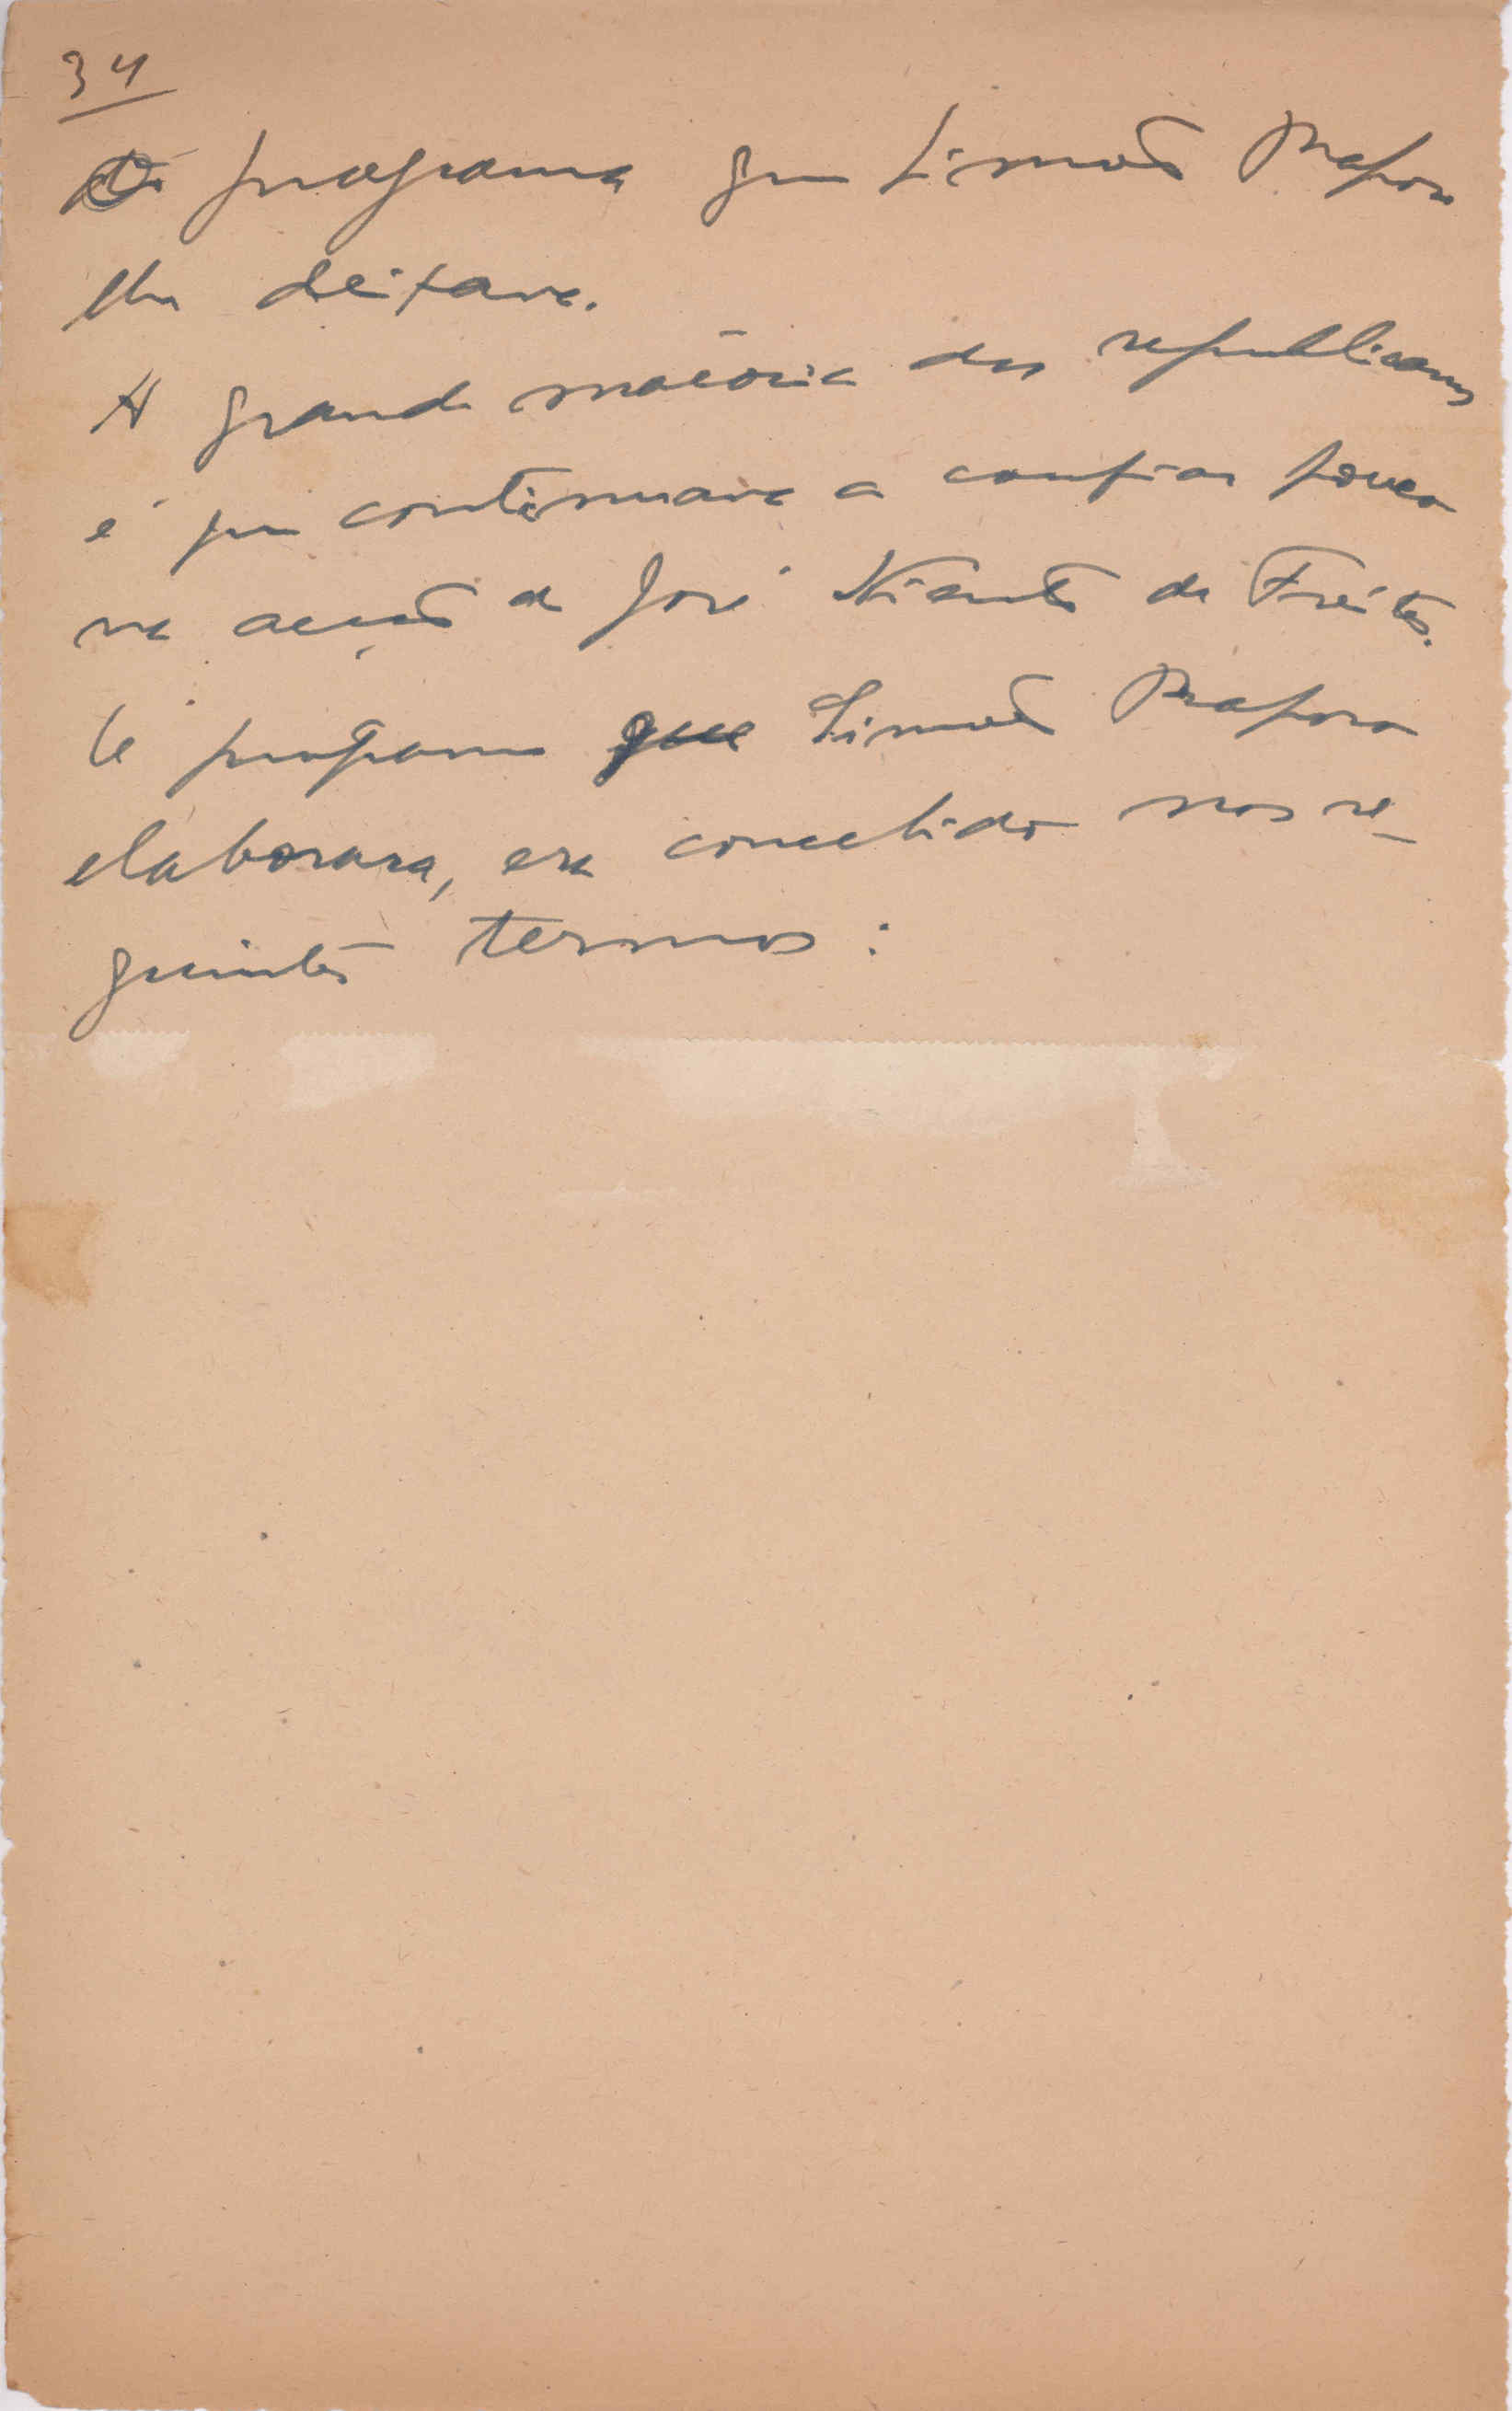 34
O programa que Simão Raposo
lhe deixava.
A grande maioria dos republicanos
é que continuava a confiar pouco
na acção de José Vicente de Freitas.
O programa que Simão Raposo
elaborara, era concebido nos se-
guintes termos: